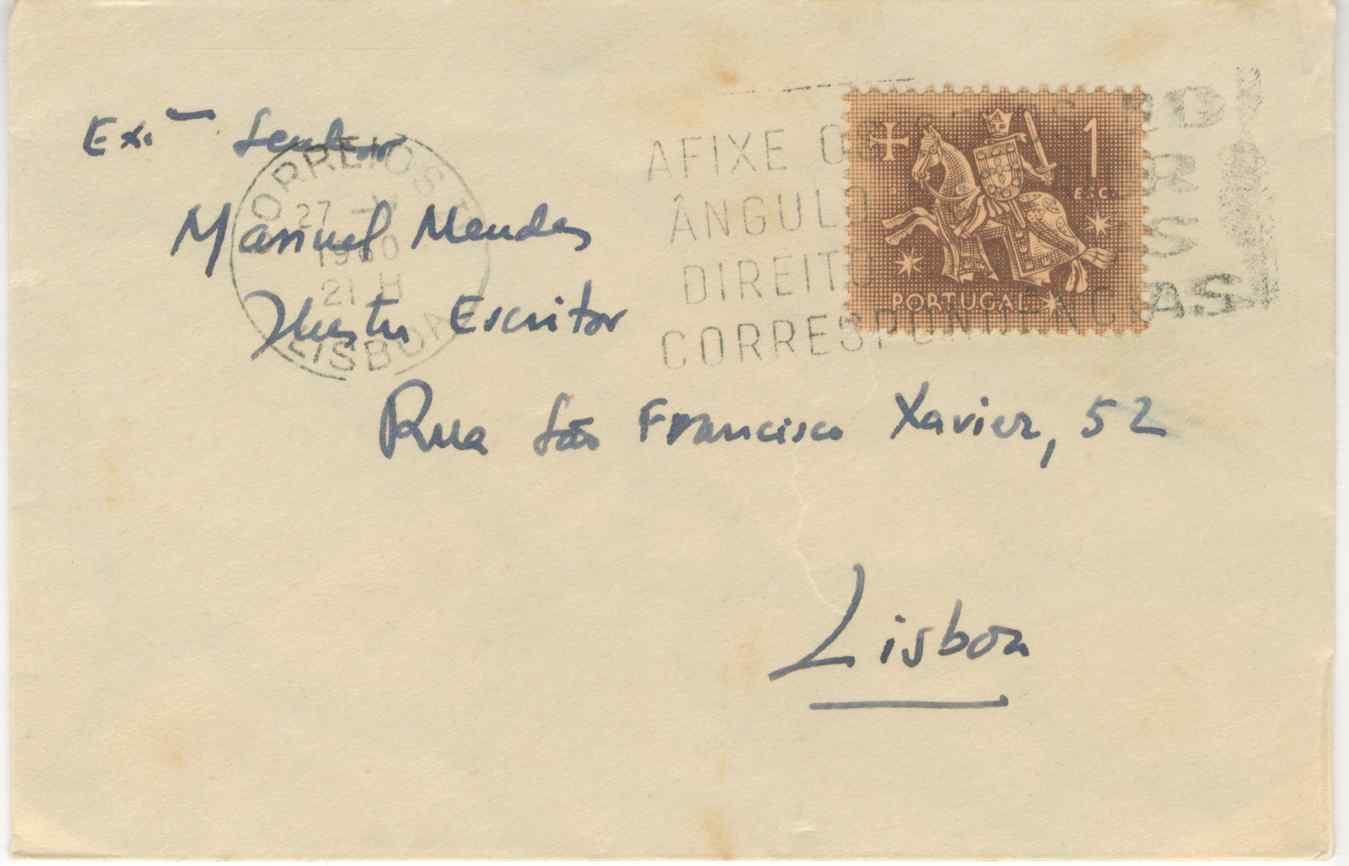 Ex.mo Senhor
Manuel Mendes
Ilustre Escritor
Rua São Francisco Xavier, 52
Lisboa
CORREIOS
27
1960
21 H
LISBOA
AFIXE
ÂNGULO
DIREITO
CORRESPONDÊNCIAS
1
ESC.
PORTUGAL